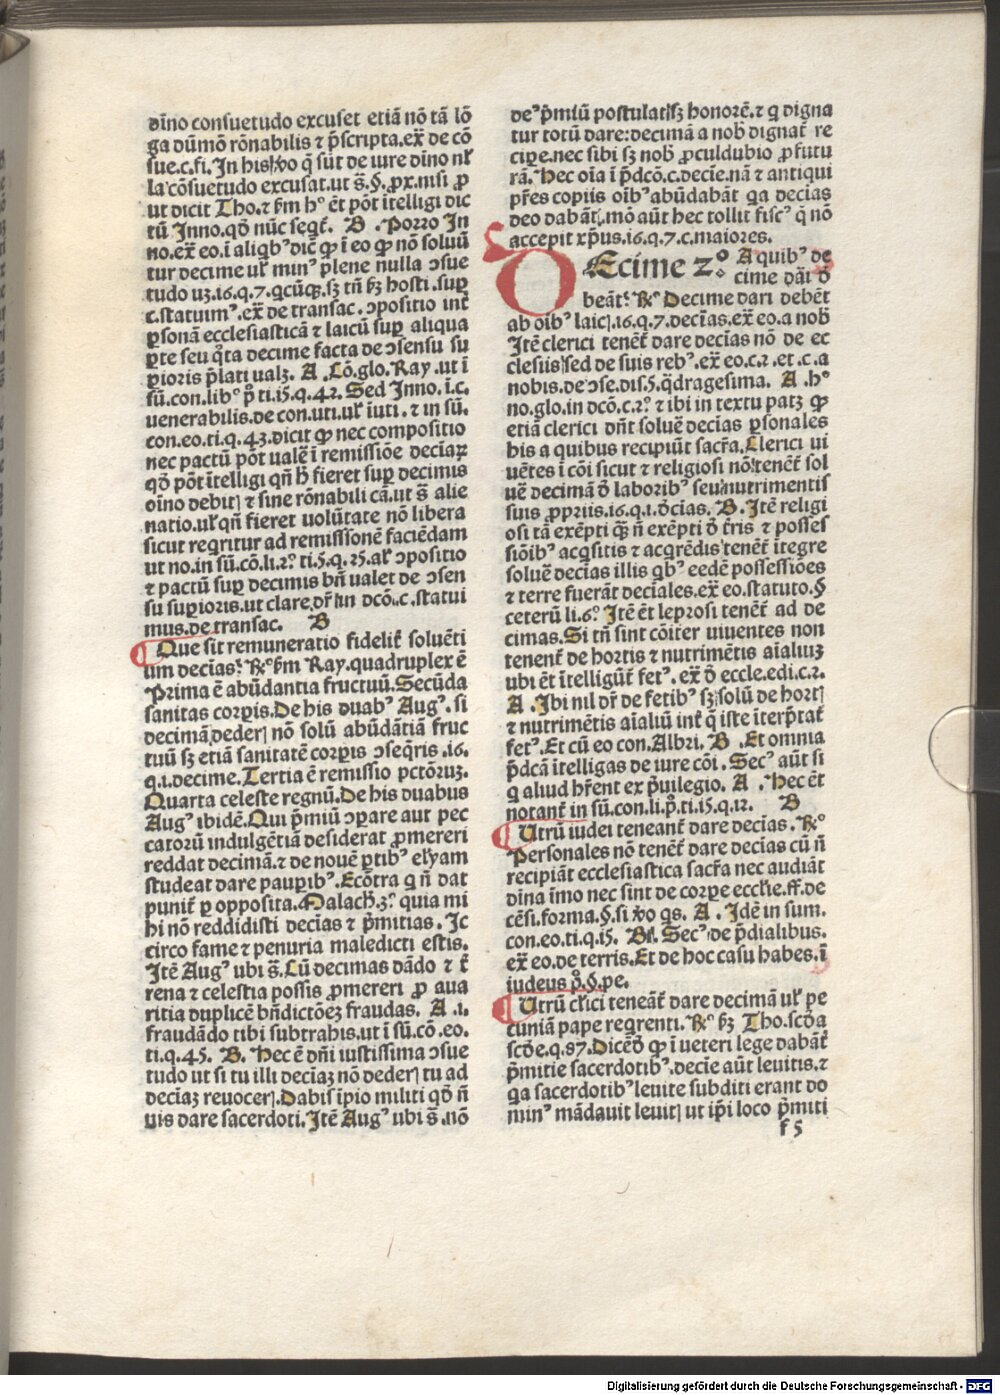 dīno consuetudo excuset etiā nō tā lō
ga dūmō rōnabilis ⁊ p̄scripta.ex̄ de cō
sue.c.fi. In his ꝟo q̄ sūt de iure dīno nł
la cōsuetudo excusat.ut s̄.§.ꝓx.nisi ꝓ
ut dicit Tho.⁊ ẜm hº ēt pōt ītelligi dic
tū Inno.qđ nūc seqt̄. B . Porro In
no.ex̄ eo.ī aliqbꝰ dicꝫ ꝙ ī eo ꝙ nō soluū
tur decime uł minꝰ plene nulla ↄsue
tudo uꝫ.16.q.7.qcūqꝫ.sꝫ tn̄ ẜꝫ hosti.suꝑ
c.statuimꝰ.ex̄ de transac.ↄpositio int̄
ꝑsonā ecclesiasticā ⁊ laicū suꝑ aliqua
ꝑte seu q̄ta decime facta de ↄsensu su
ꝑioris p̄lati ualꝫ. A .Cō.glo.Ray.ut ī
sū.con.libº p̄ ti.15.q.42. Sed Inno.ī.c.
uenerabilis.de con.uti.uł iuti.⁊ in sū.
con.eo.ti.q.43.dicit ꝙ nec compositio
nec pactū pōt ualē ī remissiōe decīaꝝ
qđ pōt ītelligi qn̄ h̄ fieret suꝑ decimis
oīno debitꝭ ⁊ sine rōnabili cā.ut s̄ alie
natio.uł qn̄ fieret uolūtate nō libera
sicut reqritur ad remissionē faciēdam
ut no.in sū.cō.li.2º ti.5.q.25.ał ↄpositio
⁊ pactū suꝑ decimis bn̄ ualet de ↄsen
su suꝑioris.ut clare dr̄ in dcō.c.statui
mus.de transac. B
Que sit remuneratio fidelit̄ soluēti
um decīas. ℞º ẜm Ray.quadruplex ē
Prima ē abūdantia fructuū.Secūda
sanitas corꝑis.De his duabꝰ Augꝰ. si
decimā dederꝭ nō solū abūdātiā fruc
tuū sꝫ etiā sanitatē corꝑis ↄseq̄ris .16.
q.1.decime.Tertia ē remissio pctōruꝫ.
Quarta celeste regnū.De his duabus
Augꝰ ibidē.Qui p̄miū ↄꝑare aut pec
catorū indulgētiā desiderat ꝓmereri
reddat decimā.⁊ de nouē ꝑtibꝰ elȳam
studeat dare pauꝑibꝰ.Ecōtra q n̄ dat
punit̄ ꝑ opposita.Malach.3º. quia mi
hi nō reddidisti decīas ⁊ p̄mitias. Ic
circo fame ⁊ penuria maledicti estis.
Itē Augꝰ ubi s̄.Cū decimas dādo ⁊ t̄
rena ⁊ celestia possis ꝓmereri ꝓ aua
ritia duplicē bn̄dictōeꝫ fraudas. A .1.
fraudādo tibi subtrahis.ut ī sū.cō.eo.
ti.q.45. B. Hec ē dn̄i iustissima ↄsue
tudo ut si tu illi decīaꝫ nō dederꝭ tu ad
decīaꝫ reuocerꝭ.Dabis īpio militi qđ n̄
uis dare sacerdoti.Itē Augꝰ ubi s̄.nō
deꝰ p̄miū postulat sꝫ honorē.⁊ q digna
tur totū dare:decimā a nob̄ dignat̄ re
ciꝑe.nec sibi sꝫ nob̄ ꝓculdubio ꝓfutu
rā.Hec oīa ī p̄dcō.c.decie.nā ⁊ antiqui
pr̄es copiis oībꝰ abūdabāt qa decīas
deo dabāt.mō aūt hec tollit fiscꝰ q̄ nō
accepit xp̄us.16.q.7.c.maiores.
DEcime 2º A quibꝰ de
cime dāi đ
beāt. ℞º Decime dari debēt
ab oībꝰ laicꝭ.16.q.7.decīas.ex̄.eo.a nob̄
Itē clerici tenēt̄ dare decīas nō de ec
clesiis sed de suis rebꝰ.ex̄ eo.c.2.et.c.a
nobis.de ↄse.dis.5.q̄dragesima. A .hº
no.glo.in dcō.c.2º ⁊ ibi in textu patꝫ ꝙ
etiā clerici dn̄t soluē decīas ꝑsonales
his a quibus recipiūt sacr̄a.Clerici ui
uētes ī cōi sicut ⁊ religiosi nō tenēt̄ sol
uē decimā đ laboribꝰ seu nutrimentis
suis ꝓpriis.16.q.1.đcīas. B. Itē religi
osi tā exēpti qꝫ n̄ exēpti đ t̄ris ⁊ posses
siōibꝰ acqsitis ⁊ acqrēdis tenēt̄ ītegre
soluē decīas illis qbꝰ eedē possessiōes
⁊ terre fuerāt deciales.ex̄ eo.statuto.§
ceterū li.6º. Itē ēt leprosi tenēt̄ ad de
cimas.Si tn̄ sint cōiter uiuentes non
tenent̄ de hortis ⁊ nutrimētis aīaliuꝫ
ubi ēt ītelligūt̄ fetꝰ.ex̄ đ eccle.edi.c.2.
A .Ibi nil dr̄ de fetibꝰ sꝫ solū de hortꝭ
⁊ nutrimētis aīaliū int̄ q̄ iste īterp̄tat̄
fetꝰ.Et cū eo con.Albri. B .Et omnia
p̄dcā ītelligas de iure cōi . Secꝰ aūt si
q aliud hr̄ent ex p̄uilegio. A .Hec ēt
notant̄ in sū.con.li.p̄.ti.15.q.12. B
Utrū iudei teneant̄ dare decīas.℞º
Personales nō tenēt̄ dare decīas cū n̄
recipiāt ecclesiastica sacr̄a nec audiāt
dīna īmo nec sint de corꝑe eccłie.ff.de
cēsi.forma.§.si ꝟo qs. A . Idē in sum.
con.eo.ti.q.15. B. Secꝰ de p̄dialibus.
ex̄ eo.de terris.Et de hoc casu habes.ī
iudeus p̄.§.pe.
Utrū cłici teneāt̄ dare decimā uł pe
cuniā pape reqrenti.℞º ẜꝫ Tho.scđa
scđe.q.87.Dicēđ ꝙ ī ueteri lege dabāt̄
p̄mitie sacerdotibꝰ.decīe aūt leuitis.⁊
qa sacerdotibꝰ leuite subditi erant do
minꝰ mādauit leuitꝭ ut ip̄i loco p̄miti
f 5
Digitalisierung gefördert durch die Deutsche Forschungsgemeinschaft - DFG